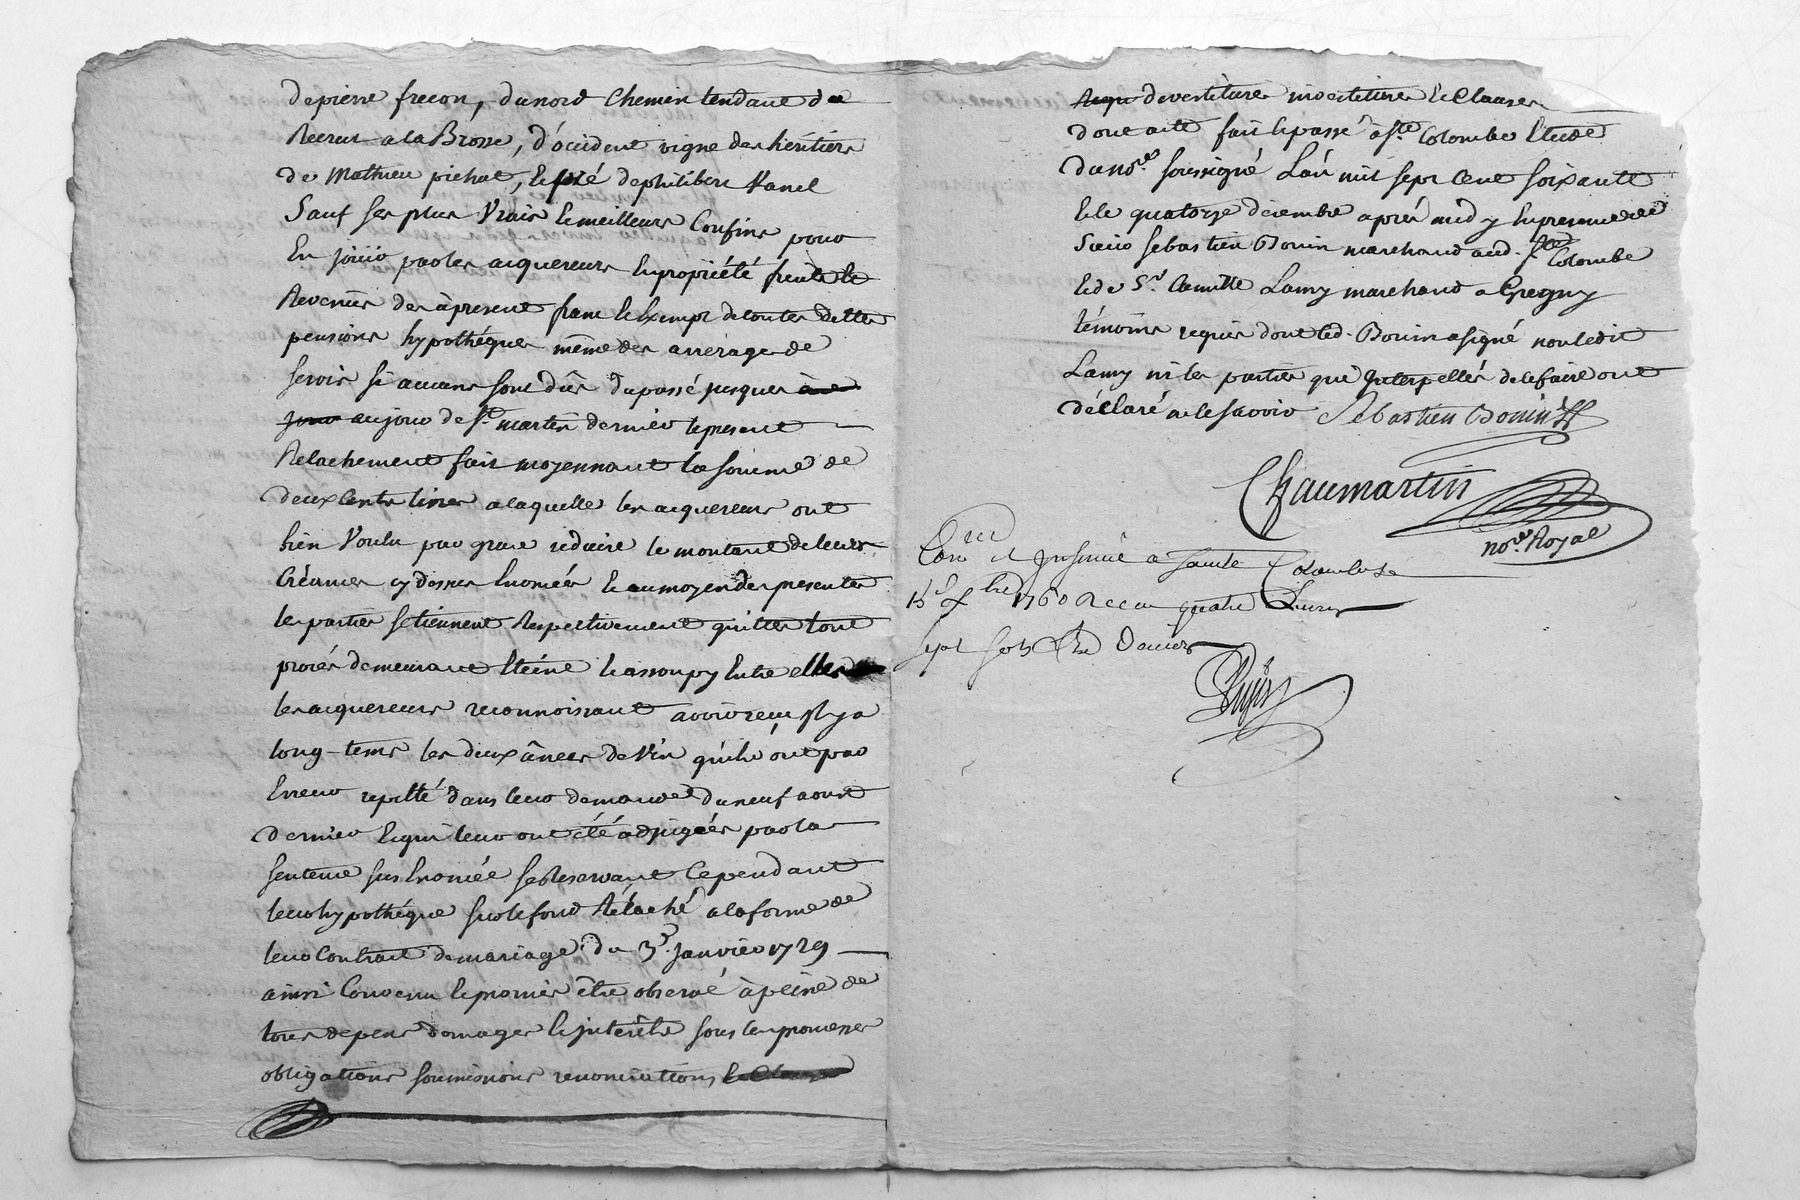 de pierre frecon, du nord Chemin tendant de
Recru a la Brosse, d'occident vigne des héritiers
de Mathieu pichat, le pré de philibert Vanel
Sauf ses plus Vrais & meilleurs Confins pour
En jouir par les acquereurs En propriété fruits &
Revenus des àpresent franc & Exempt de toutes dettes
pensions hypothéques même des arrerages de
servis si aucuns sont dûs du passé jusques
au jour de St. martin dernier le present
Relachement fait moyennant la somme de
deux Cents livres a laquelle les acquereurs ont
bien Voulu par grace reduire le montant de leurs
Créances cy dessus Enoncées & au moyen des presentes
les parties se tiennent Respectivement quittes tout
procés demeurant Eteint & assoupy Entre elles
les acquereurs reconnoissant avoir reçu il y a
long-tems les deux ânées de Vin qu'ils ont par
Erreur repetté dans leur demande du neuf aoust
dernier & qui leur ont été adjugées par la
sentence sus Enoncée se Reservant Cependant
leur hypothéque sur le fond Rélaché a la forme de
leur Contrat de mariage du 3e. Janvier 1729
ainsi Convenu & promis être observé à peine de
tous depens domages & interêts sous les promesses
obligations soumissions renonciations & Clauses
devestiture investiture & Clauses
dont acte fait & passé à Ste Colombe Etude
du nore. soussigné L'an mil sept Cent soixante
& le quatorze décembre aprés midy En presence de
Sieur Sebastien Bonin marchand aud. Ste Colombe
& de Sr. Camille Lamy marchand a Gregny
témoins requis dont led. Bonin a signé non ledit
Lamy ni les parties qui Interpellés de le faire ont
déclaré ne le savoir Sebastien Bonin
Chaumartin
nore. Royal
Con et insinué a Sainte Colombe le
15e Xbre 1760 Receu quatre Livres
sept sols Six Deniers